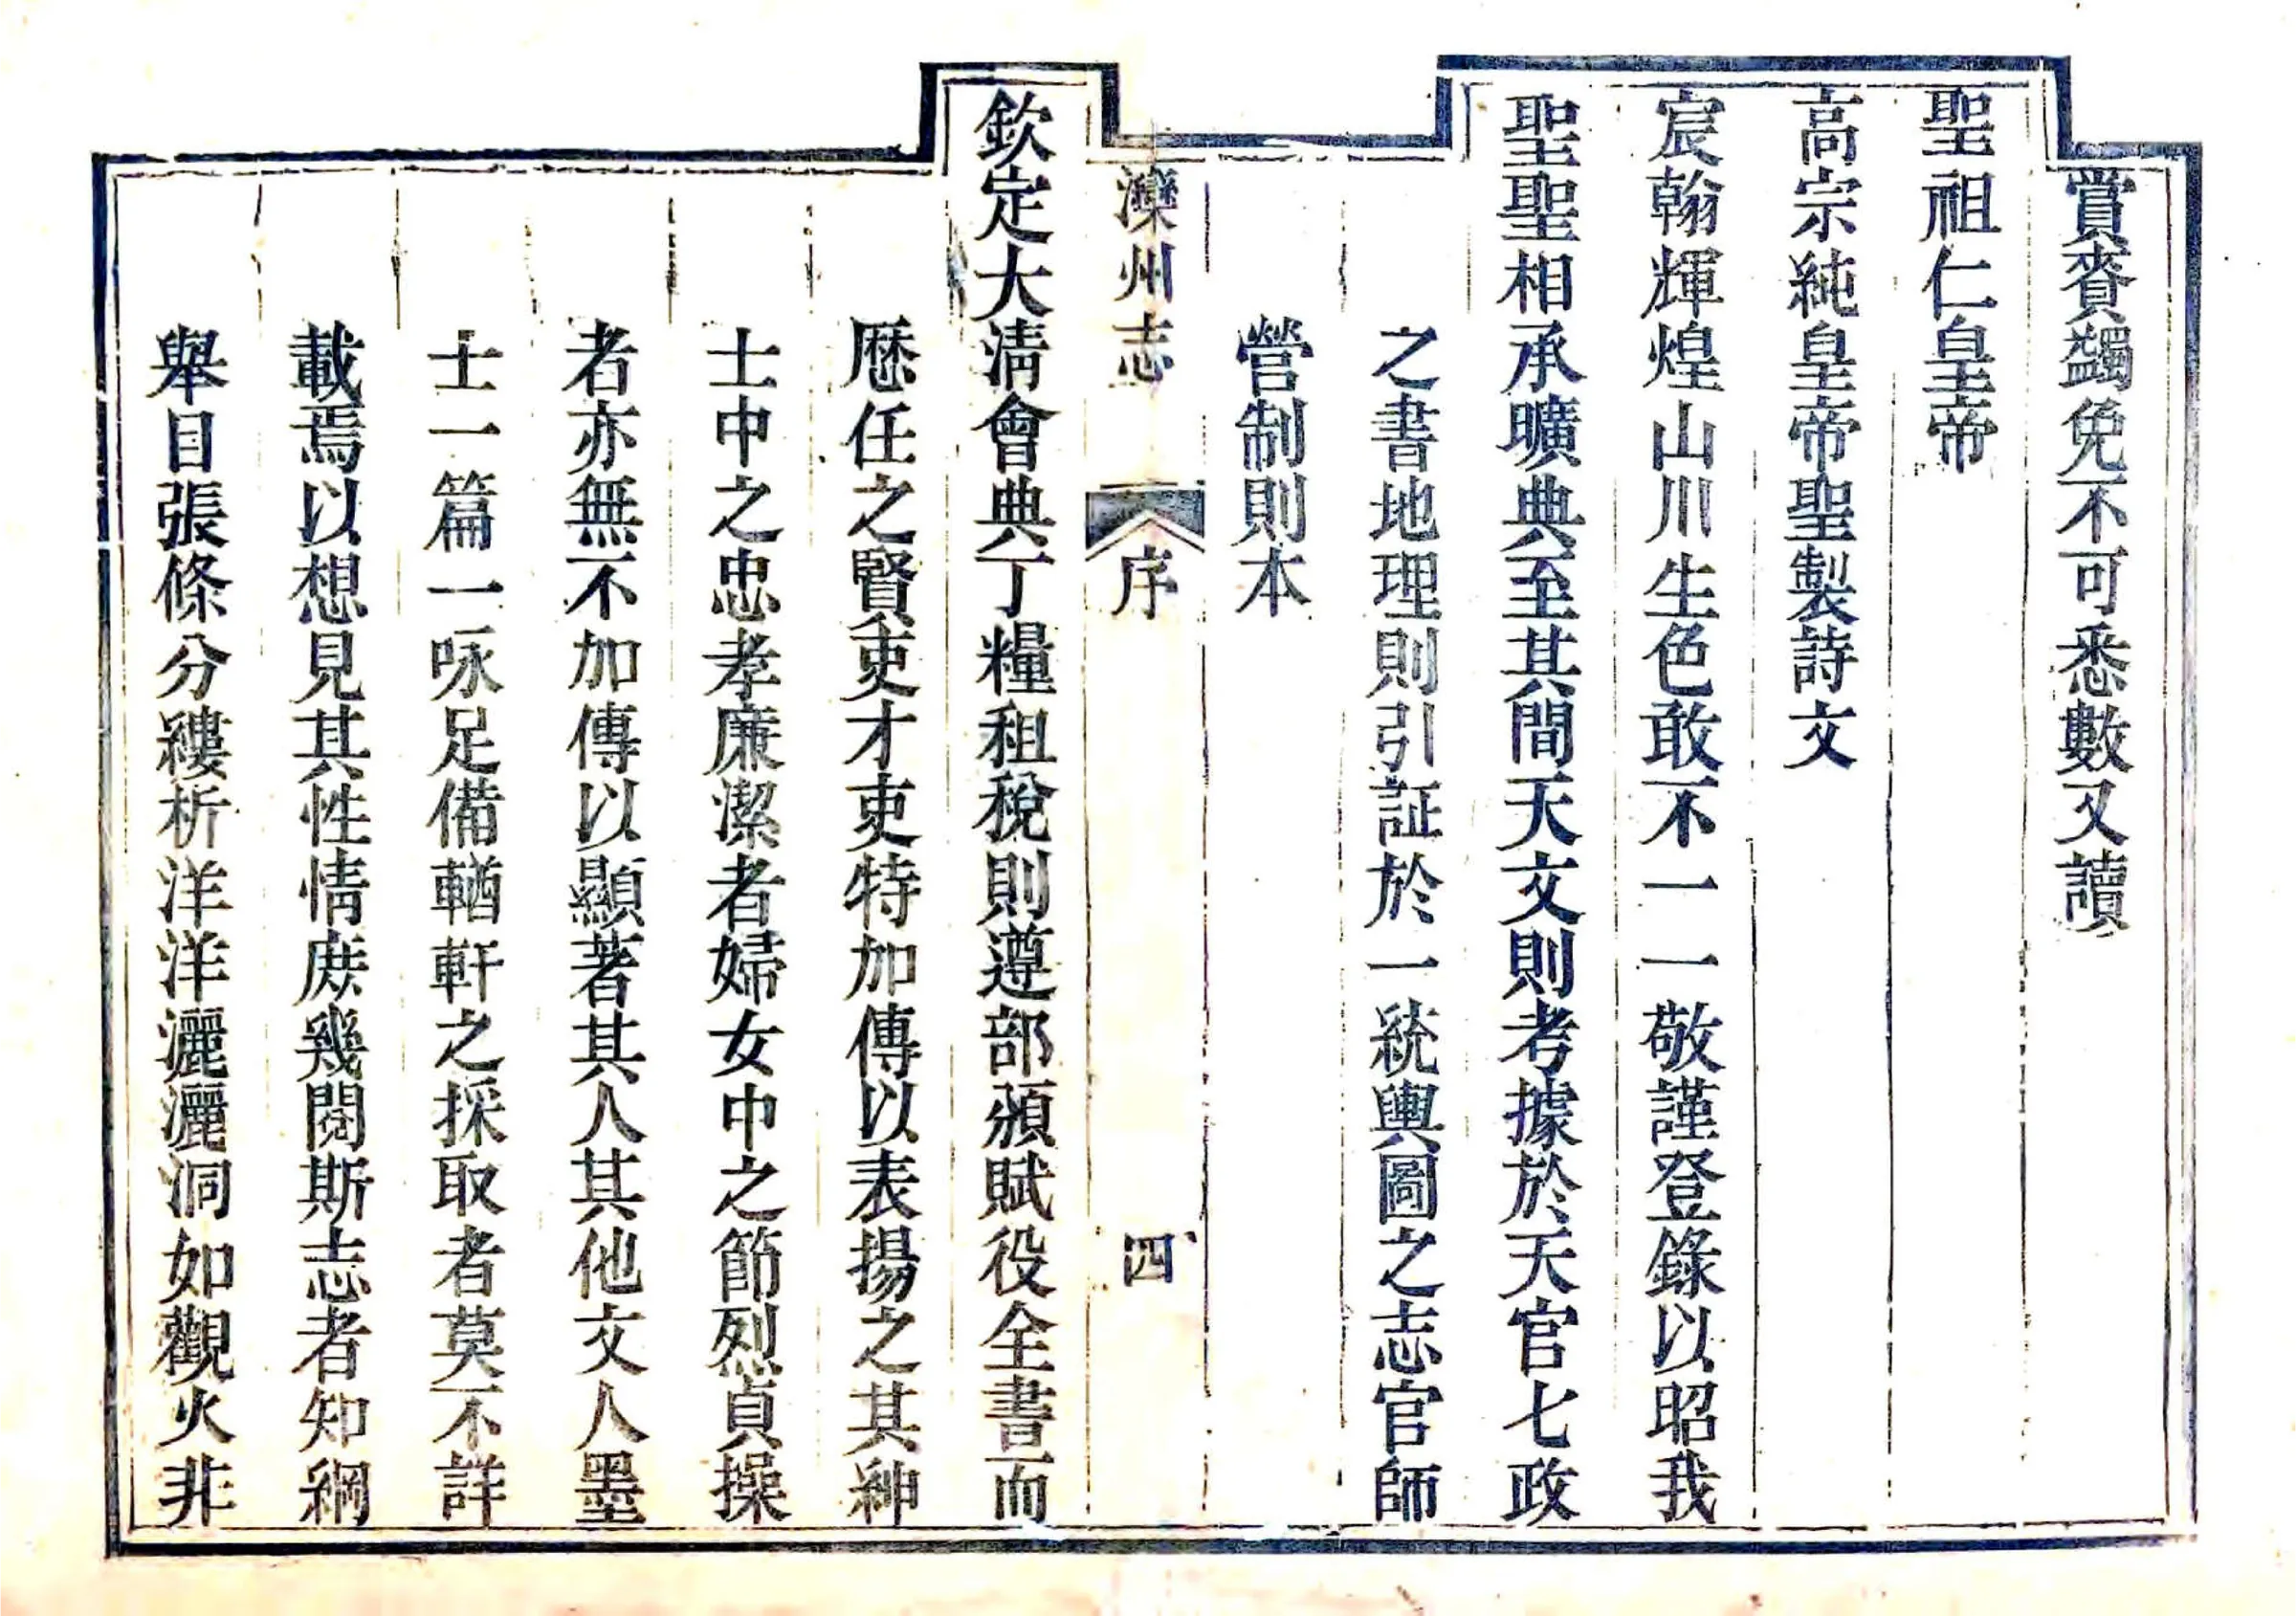 賞賚蠲免不可悉數又讀
聖祖仁皇帝
高宗純皇帝聖製詩文
宸翰輝煌山川生色敢不一一敬謹登錄以昭我
聖聖相承曠典至其間天文則考據於天官七政
之書地理則引証於一統輿圖之志官師
營制則本
灤州志
序
四
欽定大清會典丁糧租稅則遵部頒賦役全書而
歷任之賢吏才吏特加傳以表揚之其紳
士中之忠孝廉潔者婦女中之節烈貞操
者亦無不加傳以顯著其人其他文人墨
士一篇一咏足備輶軒之採取者莫不詳
載焉以想見其性情庶幾閱斯志者知綱
舉目張條分縷析洋洋灑灑洞如觀火非